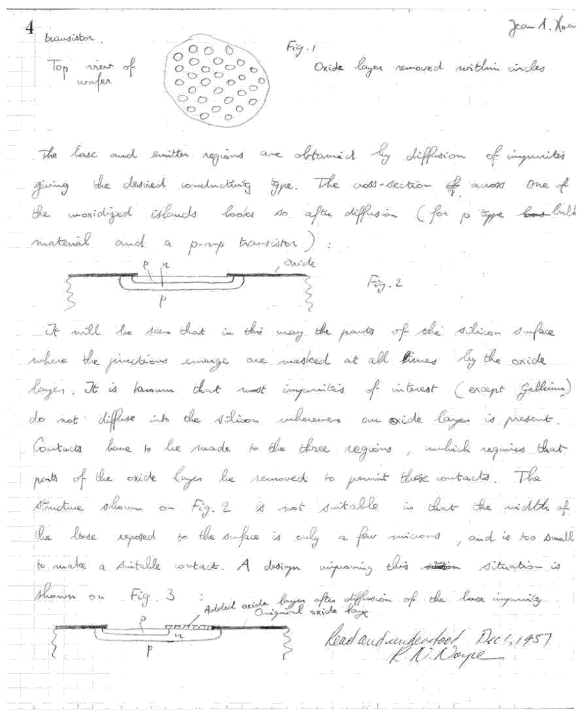 4
Jean A. Hoer
transistor.
Fig. 1
Top view of
wafer
Oxide layer removed within circles
The base and emitter regions are obtained by diffusion of impurities
giving the desired conductivity type. The cross-section across one of
the unoxidized islands looks so after diffusion (for p type bulk
material and a p-n-p transistor) :
p n oxide
p
Fig. 2
It will be seen that in this way the parts of the silicon surface
where the junctions emerge are masked at all times by the oxide
layer. It is known that most impurities of interest (except Gallium)
do not diffuse into the silicon whenever an oxide layer is present.
Contacts have to be made to the three regions, which requires that
parts of the oxide layer be removed to permit these contacts. The
structure shown on Fig. 2 is not suitable in that the width of
the base exposed to the surface is only a few microns, and is too small
to make a suitable contact. A design improving this situation is
shown on Fig. 3 :
Added oxide layer after diffusion of the base impurity
Original oxide layer
p
n
p
Read and understood Dec 1, 1957
R N Noyce